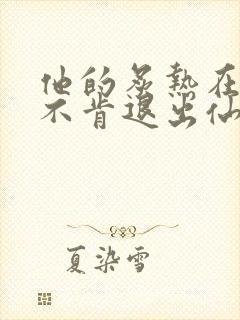 他的炙热在
不肯退出仙
夏染雪